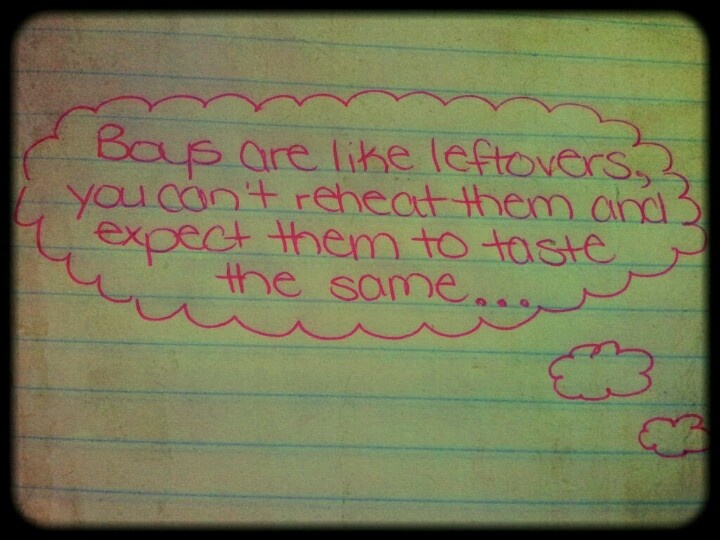 Boys are like leftovers,
you can't reheat them and
expect them to taste
the same...